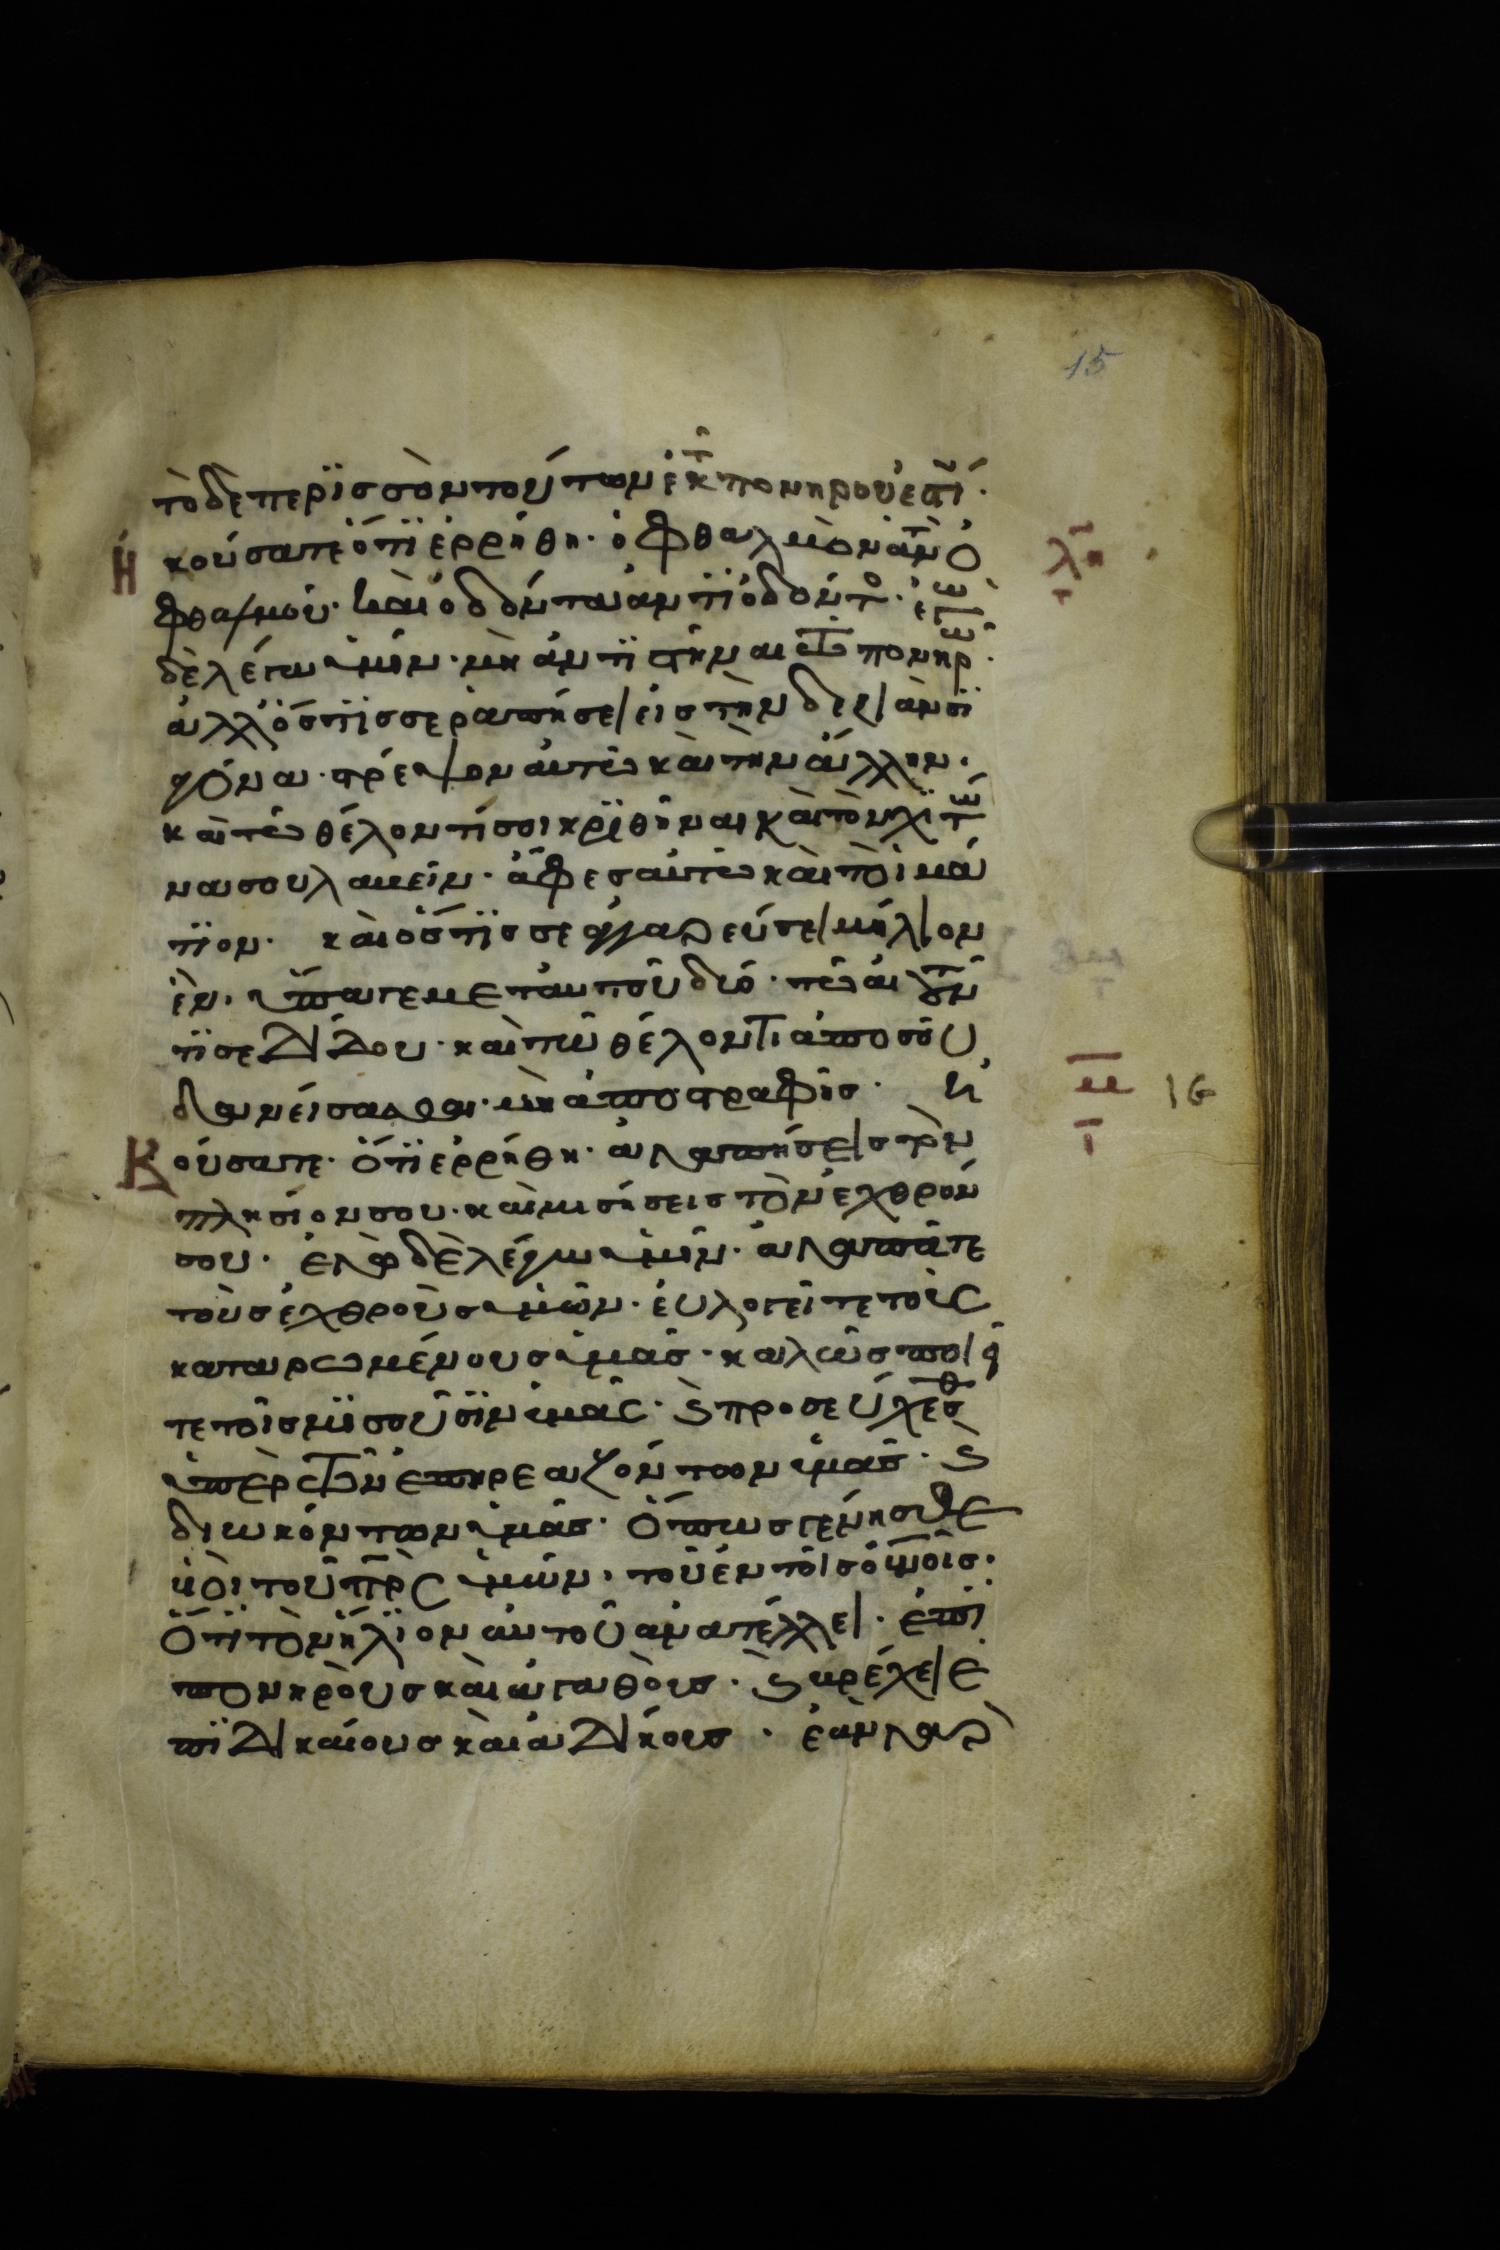 15
τὸ δὲ περϊσσὸν τούτων ἐκ τ πονηροῦ ἐστί.
Ἠ κούσατε ὅτϊ ἐρρήθη· ὀφθαλμὸν ἀντὸ
λη
τ
φθαλμοῦ· καὶ ὀδόντα ἀντϊ ὀδόντο· ἐγὼ
δὲ λέγω ὑμῖν· μὴ ἀντϊστῆναι τῶ πονηρῶ·
ἀλλ' ὅστϊς σε ῥαπήσει εἰς τὴν δεξιὰν σϊ
αγόνα· στρέψον αὐτῶ καὶ τὴν ἄλλην·
καὶ τῶ θέλοντί σοι κρϊθῆναι καὶ τὸν χϊτῶ
να σου λαβεῖν· ἄφες αὐτῶ καὶ τὸ ἱμά
τϊον· καὶ ὅστϊς σε ἀγγαρεύσει μήλιον
ἕν· ὕπαγε μετ' αὐτοῦ δύο· τῶ αἰτοῦν
τϊ σε δίδου· καὶ τὸν θέλοντι ἀπὸ σοῦ
δανείσασθαι· μὴ ἀποστραφῆς· Ἠ
με
τ
16
Κ ούσατε· ὅτϊ ἐρρήθη· ἀγαπήσεις τὸν
πλησίον σου· καὶ μισήσεις τὸν ἐχθρόν
σου· ἐγὼ δὲ λέγω ὑμῖν· ἀγαπᾶτε
τοὺς ἐχθροὺς ὑμῶν· εὐλογεῖτε τοὺς
καταρωμένους ὑμᾶς· καλῶς ποιεῖ
τε τοῖς μϊσοῦσϊν ὑμᾶς· ϗ προσεύχεσθ
ὑπὲρ τῶν ἐπηρεαζόντων ὑμᾶς· ϗ
διωκόντων ὑμᾶς· ὅπως γένησθε
υἱοὶ τοῦ πρς ὑμῶν· τοῦ ἐν τοῖς οὐνοις·
ὅτϊ τὸν ἥλϊον αὐτοῦ ἀνατέλλει· ἐπϊ
πονηροὺς καὶ ἀγαθούς· ϗ βρέχει ἐ
πϊ δικαίους καὶ ἀδίκους· ἐὰν γὰρ